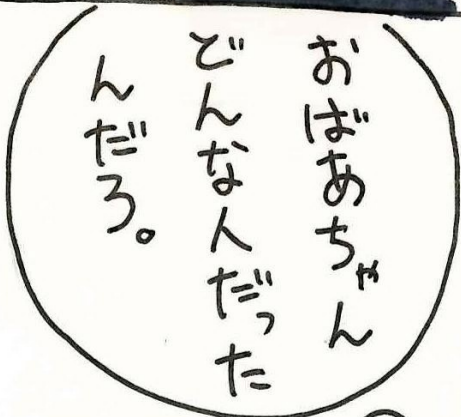 おばあちゃん
どんな人だった
んだろ。